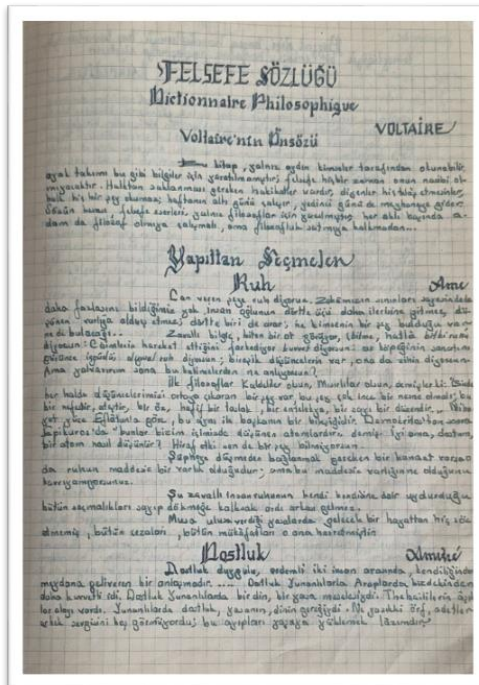 FELSEFE SÖZLÜĞÜ
Dictionnaire Philosophique
VOLTAİRE
Voltaire'nin Önsözü
Bu kitap, yalnız aydın kimseler tarafından okunabilir,
ayak takımı bu gibi bilgiler için yaratılmamıştır; felsefe hiçbir zaman onun nasibi ol-
mıyacaktır. Halktan saklanması gereken hakikatler vardır, diğenler
hiç bir şey okumaz; haftanın altı günü çalışır, yedinci günü de meyhaneye gider.
felsefe eserleri, yalnız filozoflar için yazılmıştır, her aklı başında a-
dam da filozof olmıya çalışmalı, ama filozofluk satmıya kalkmadan...
Yapıttan Seçmeler
Ruh Ame
Can veren şeye ruh diyoruz. Zekâmızın sınırları sayesinde
daha fazlasını bildiğimiz yok. İnsan oğlunun dörtte üçü daha ilerisine gitmez, dü-
şünen varlığa aldırış etmez; dörtte biri de arar; ne kimsenin bir şey bulduğu var
ne de bulacağı...
Zavallı bilgiç, biten bir ot görüyor, bitme, hatta bitki ruhu
diyorsun. Cisimlerin hareket ettiğini farkediyor kuvvet diyorsun; av köpeğinin sanatını
görünce içgüdü, ruh diyorsun; birleşik düşüncelerin var, ona da zihin diyorsun.
Ama yalvarırım sana bu kelimelerden ne anlıyorsun?
İlk filozoflar Kaldeliler olsun, Mısırlılar olsun, demişler ki: Bizde
her halde düşüncelerimizi ortaya çıkaran bir şey var, bu şey çok ince bir neme olmalı; bu
bir nefestir, ateştir, bir öz, hafif bir taslak, bir entelekya, bir sayı bir düzendir... Niha
yet yüce Eflâtun'a göre, bu aynı ile başkanın bir bileşiğidir. Demokritos'tan sonra
Epikuros'da "bunlar bizim içimizde düşünen atomlardır" demiş. İyi ama, dostum,
bir atom nasıl düşünür? İtiraf et ki sen de bir şey bilmiyorsun.
Şüphesiz bağlanmak gereken bir kanaat varsa
da ruhun maddesiz bir varlık olduğudur; ama bu maddesiz varlığın ne olduğunu
kavrıyamıyorsunuz.
Şu zavallı insan ruhunun kendi kendisine dair uydurduğu
bütün saçmalıkları sayıp dökmeğe kalksak ardı arkası gelmez.
Musa ulusa verdiği yasalarda gelecek bir hayattan hiç söz
etmemiş, bütün cezaları, bütün mükâfatları o ana hasretmiştir.
Dostluk Amitié
Dostluk duygulu, erdemli iki insan arasında, kendiliğinden
meydana geliveren bir anlaşmadır.... Dostluk Yunanlılarla Araplarda bizdekinden
daha kuvvetli idi. Dostluk Yunanlılarda bir din, bir yasa meselesiydi. Thebaililerin âşık-
lar alayı vardı. Yunanlılarda dostluk, yasanın, dinin gereğiydi. Ne yazık ki örf, adetler
erkek sevgisini hoş görmüyordu; bu ayıpları yasaya yüklemek lâzımdır.